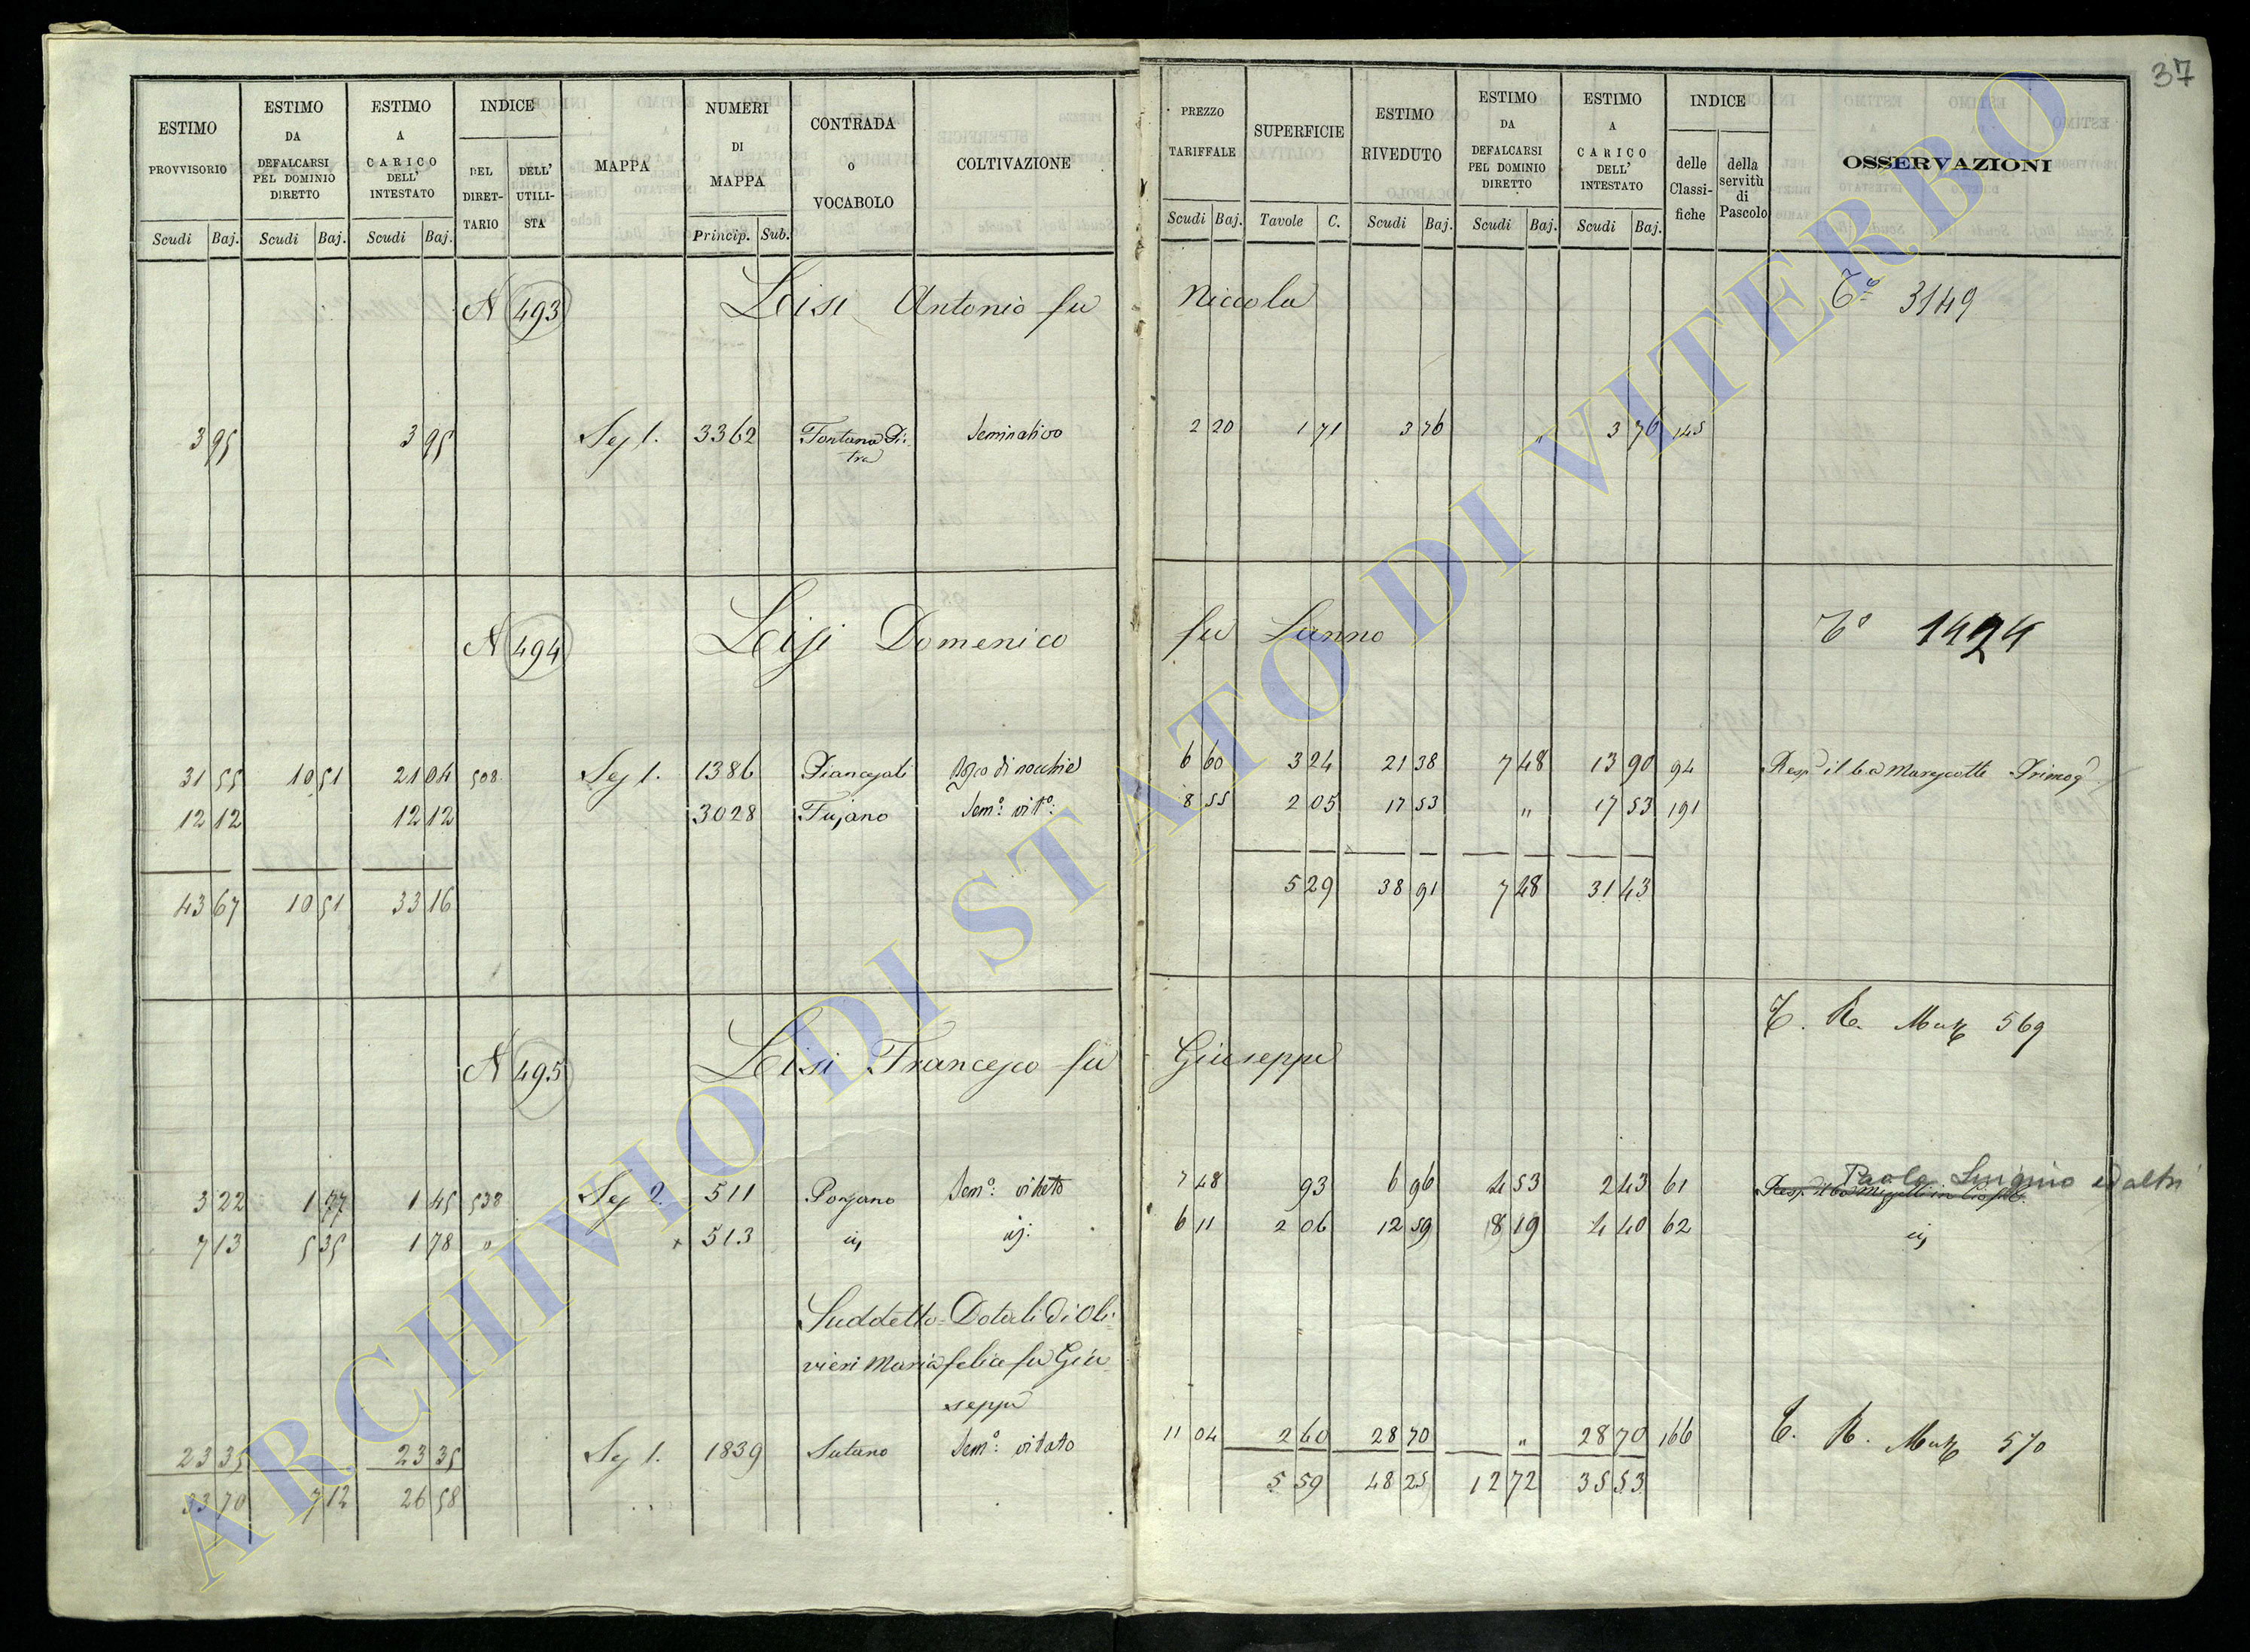 37
ESTIMO PROVVISORIO
ESTIMO DA DEFALCARSI PEL DOMINIO DIRETTO
ESTIMO A CARICO DELL' INTESTATO
INDICE
DEL DIRET-TARIO
DELL' UTILI-STA
MAPPA
NUMERI DI MAPPA
CONTRADA o VOCABOLO
COLTIVAZIONE
PREZZO TARIFFALE
SUPERFICIE
ESTIMO RIVEDUTO
ESTIMO DA DEFALCARSI PEL DOMINIO DIRETTO
ESTIMO A CARICO DELL' INTESTATO
INDICE
delle Classi-fiche
della servitù di Pascolo
OSSERVAZIONI
Scudi Baj. Scudi Baj. Scudi Baj. Princip. Sub. Scudi Baj. Tavole C. Scudi Baj. Scudi Baj. Scudi Baj.
N 493 Leisi Antonio fu Niccola 3149
3 95 3 95 Sez 1. 3362 Fontana Seminativo 2 20 1 71 3 76 " 3 76 145
N 494 Leisi Domenico fu 1424
31 55 10 51 21 04 508 Sez 1. 1386 di nocchie 6 60 3 24 21 38 7 48 13 90 94
12 12 12 12 3028 Sem.º vit.º: 8 55 2 05 17 53 " 17 53 191
43 67 10 51 33 16 5 29 38 91 7 48 31 43
N 495 Leisi Francesco fu Giuseppe 569
3 22 1 77 1 45 538 Sez 2. 511 Ponzano Sem.º: vitato 7 48 93 6 96 4 53 2 43 61 Paolo ed altri
7 13 5 35 1 78 " + 513 6 11 2 06 12 59 8 19 4 40 62
Suddetto = Dotali di Oli-
vieri Maria felice fu Giu-
seppe
23 35 23 35 Sez 1. 1839 Sutano Sem.º: vitato 11 04 2 60 28 70 " 28 70 166 570
33 70 7 12 26 58 5 59 48 25 12 72 35 53
ARCHIVIO DI STATO DI VITERBO